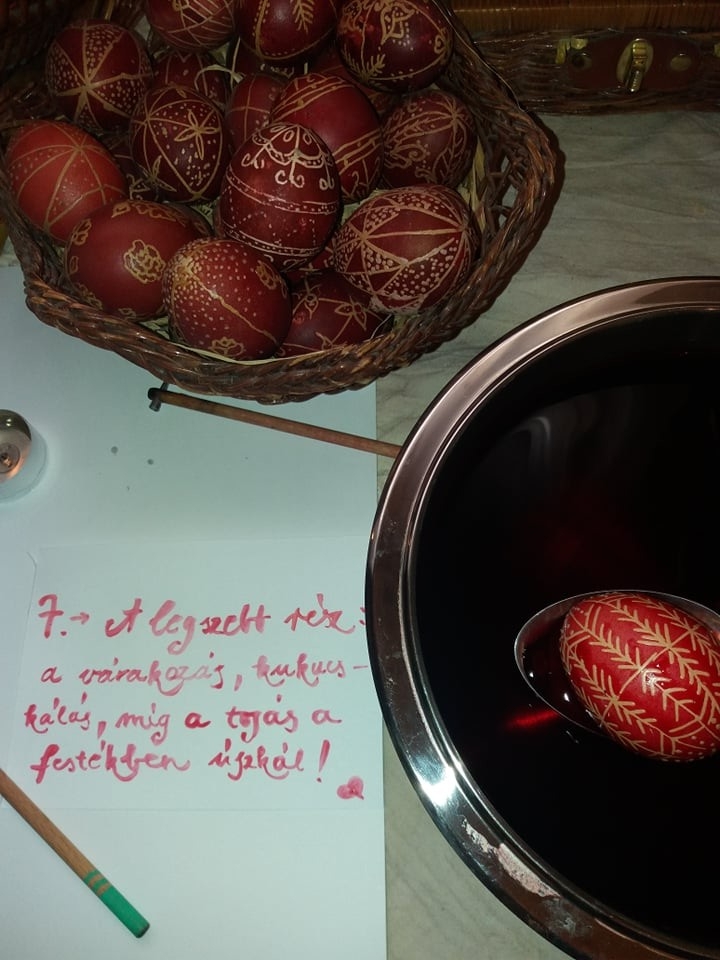 7.→ A legszebb rész:
a várakozás, kukucs-
kálás, míg a tojás a
festékben úszkál!